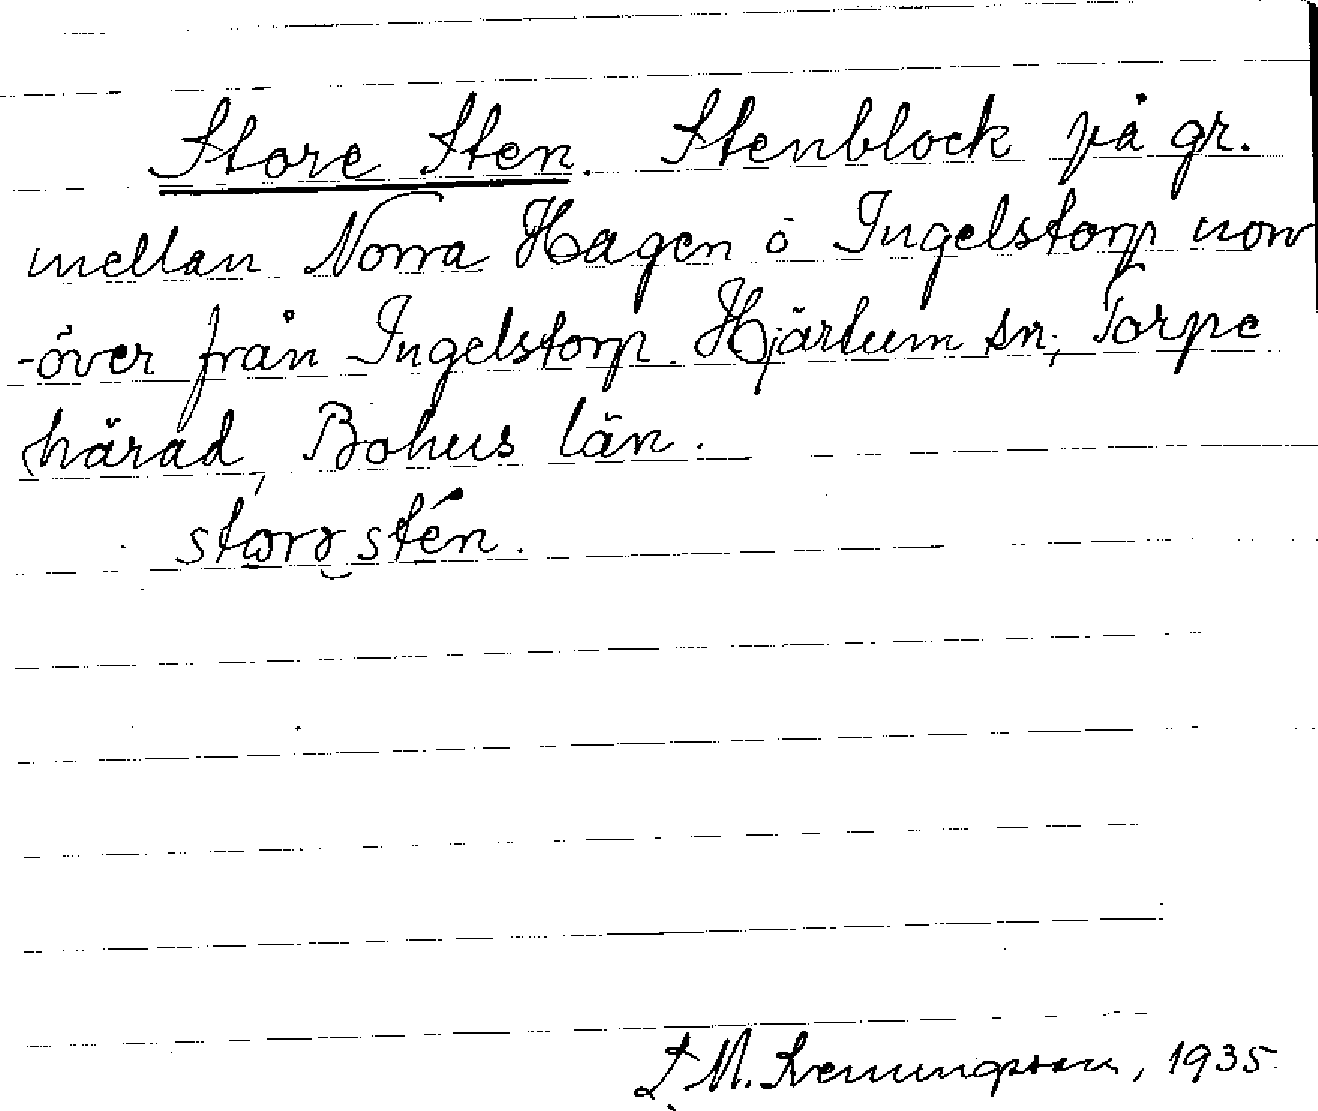 Store Sten. Stenblock på gr.
mellan Norra Hagen ö Ingelstorp norr
-över från Ingelstorp. Hjärtum sn, Torpe
härad, Bohus län.
stén.
M. 1935